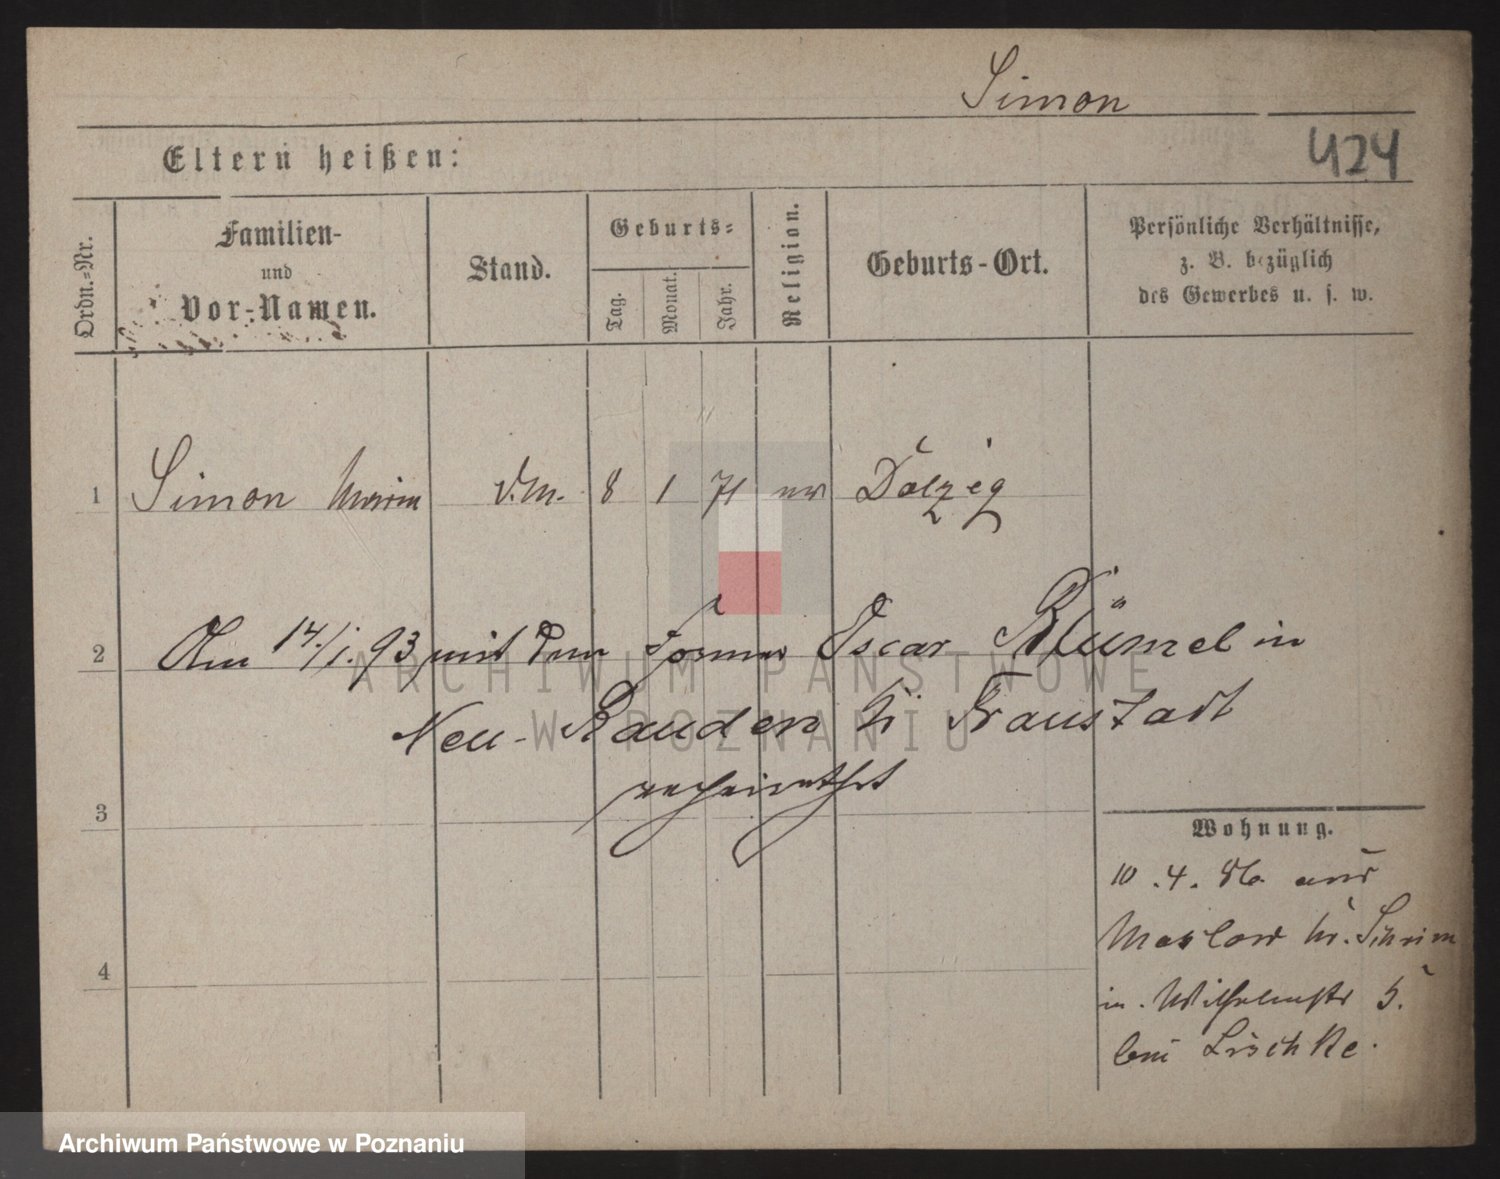 Simon
424
Eltern heißen:
Ordn.-Nr.
Familien-
und
Vor-Namen.
Stand.
Geburts-
Tag.
Monat.
Jahr.
Religion.
Geburts-Ort.
Persönliche Verhältnisse,
z. B. bezüglich
des Gewerbes u. s. w.
1 Simon d.M. 8 1 71 Dolzig
2 Am 14./1. 93 mit dem Oscar Blümel in
Neu-Rauden Kr Fraustadt
verheirathet
3
Wohnung.
10.4.86. aus
Maslow Kr. Schrim
in Wilhelmstr 5.
bei Lischke.
4
ARCHIWUM PAŃSTWOWE
W POZNANIU
Archiwum Państwowe w Poznaniu